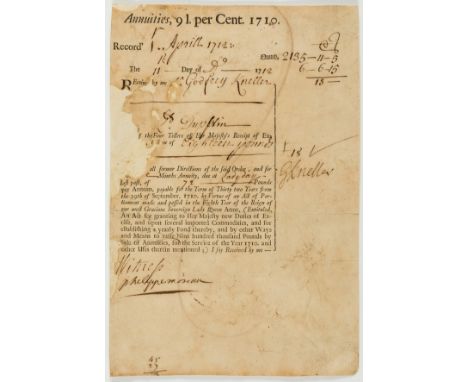 Annuities, 9 l. per Cent. 1710.
Record' Aprill 1712
2135-11-5
The 11 Day of D° 1712 6-6-15
Received by me Sr Godfrey Kneller 18
of the Four Tellers of Her Majesty's Receipt of Ex-
of Eighteen pounds
all former Directions of the said Order, and for
Months Annuity, due at Lady day
last past, of 72 Pounds
per Annum, payable for the Term of Thirty two Years from
the 29th of September, 1710. by Virtue of an Act of Par-
liament made and passed in the Eighth Year of the Reign of
our most Gracious Sovereign Lady Queen Anne, (Entituled,
An Act for granting to Her Majesty new Duties of Excise,
and upon several Imported Commodities, and for
establishing a yearly Fund thereby, and by other Ways
and Means to raise Nine hundred thousand Pounds by
Sale of Annuities, for the Service of the Year 1710. and
other Uses therein mentioned;) I say Received by me —
18
GKneller
Witness
phelippe moreau